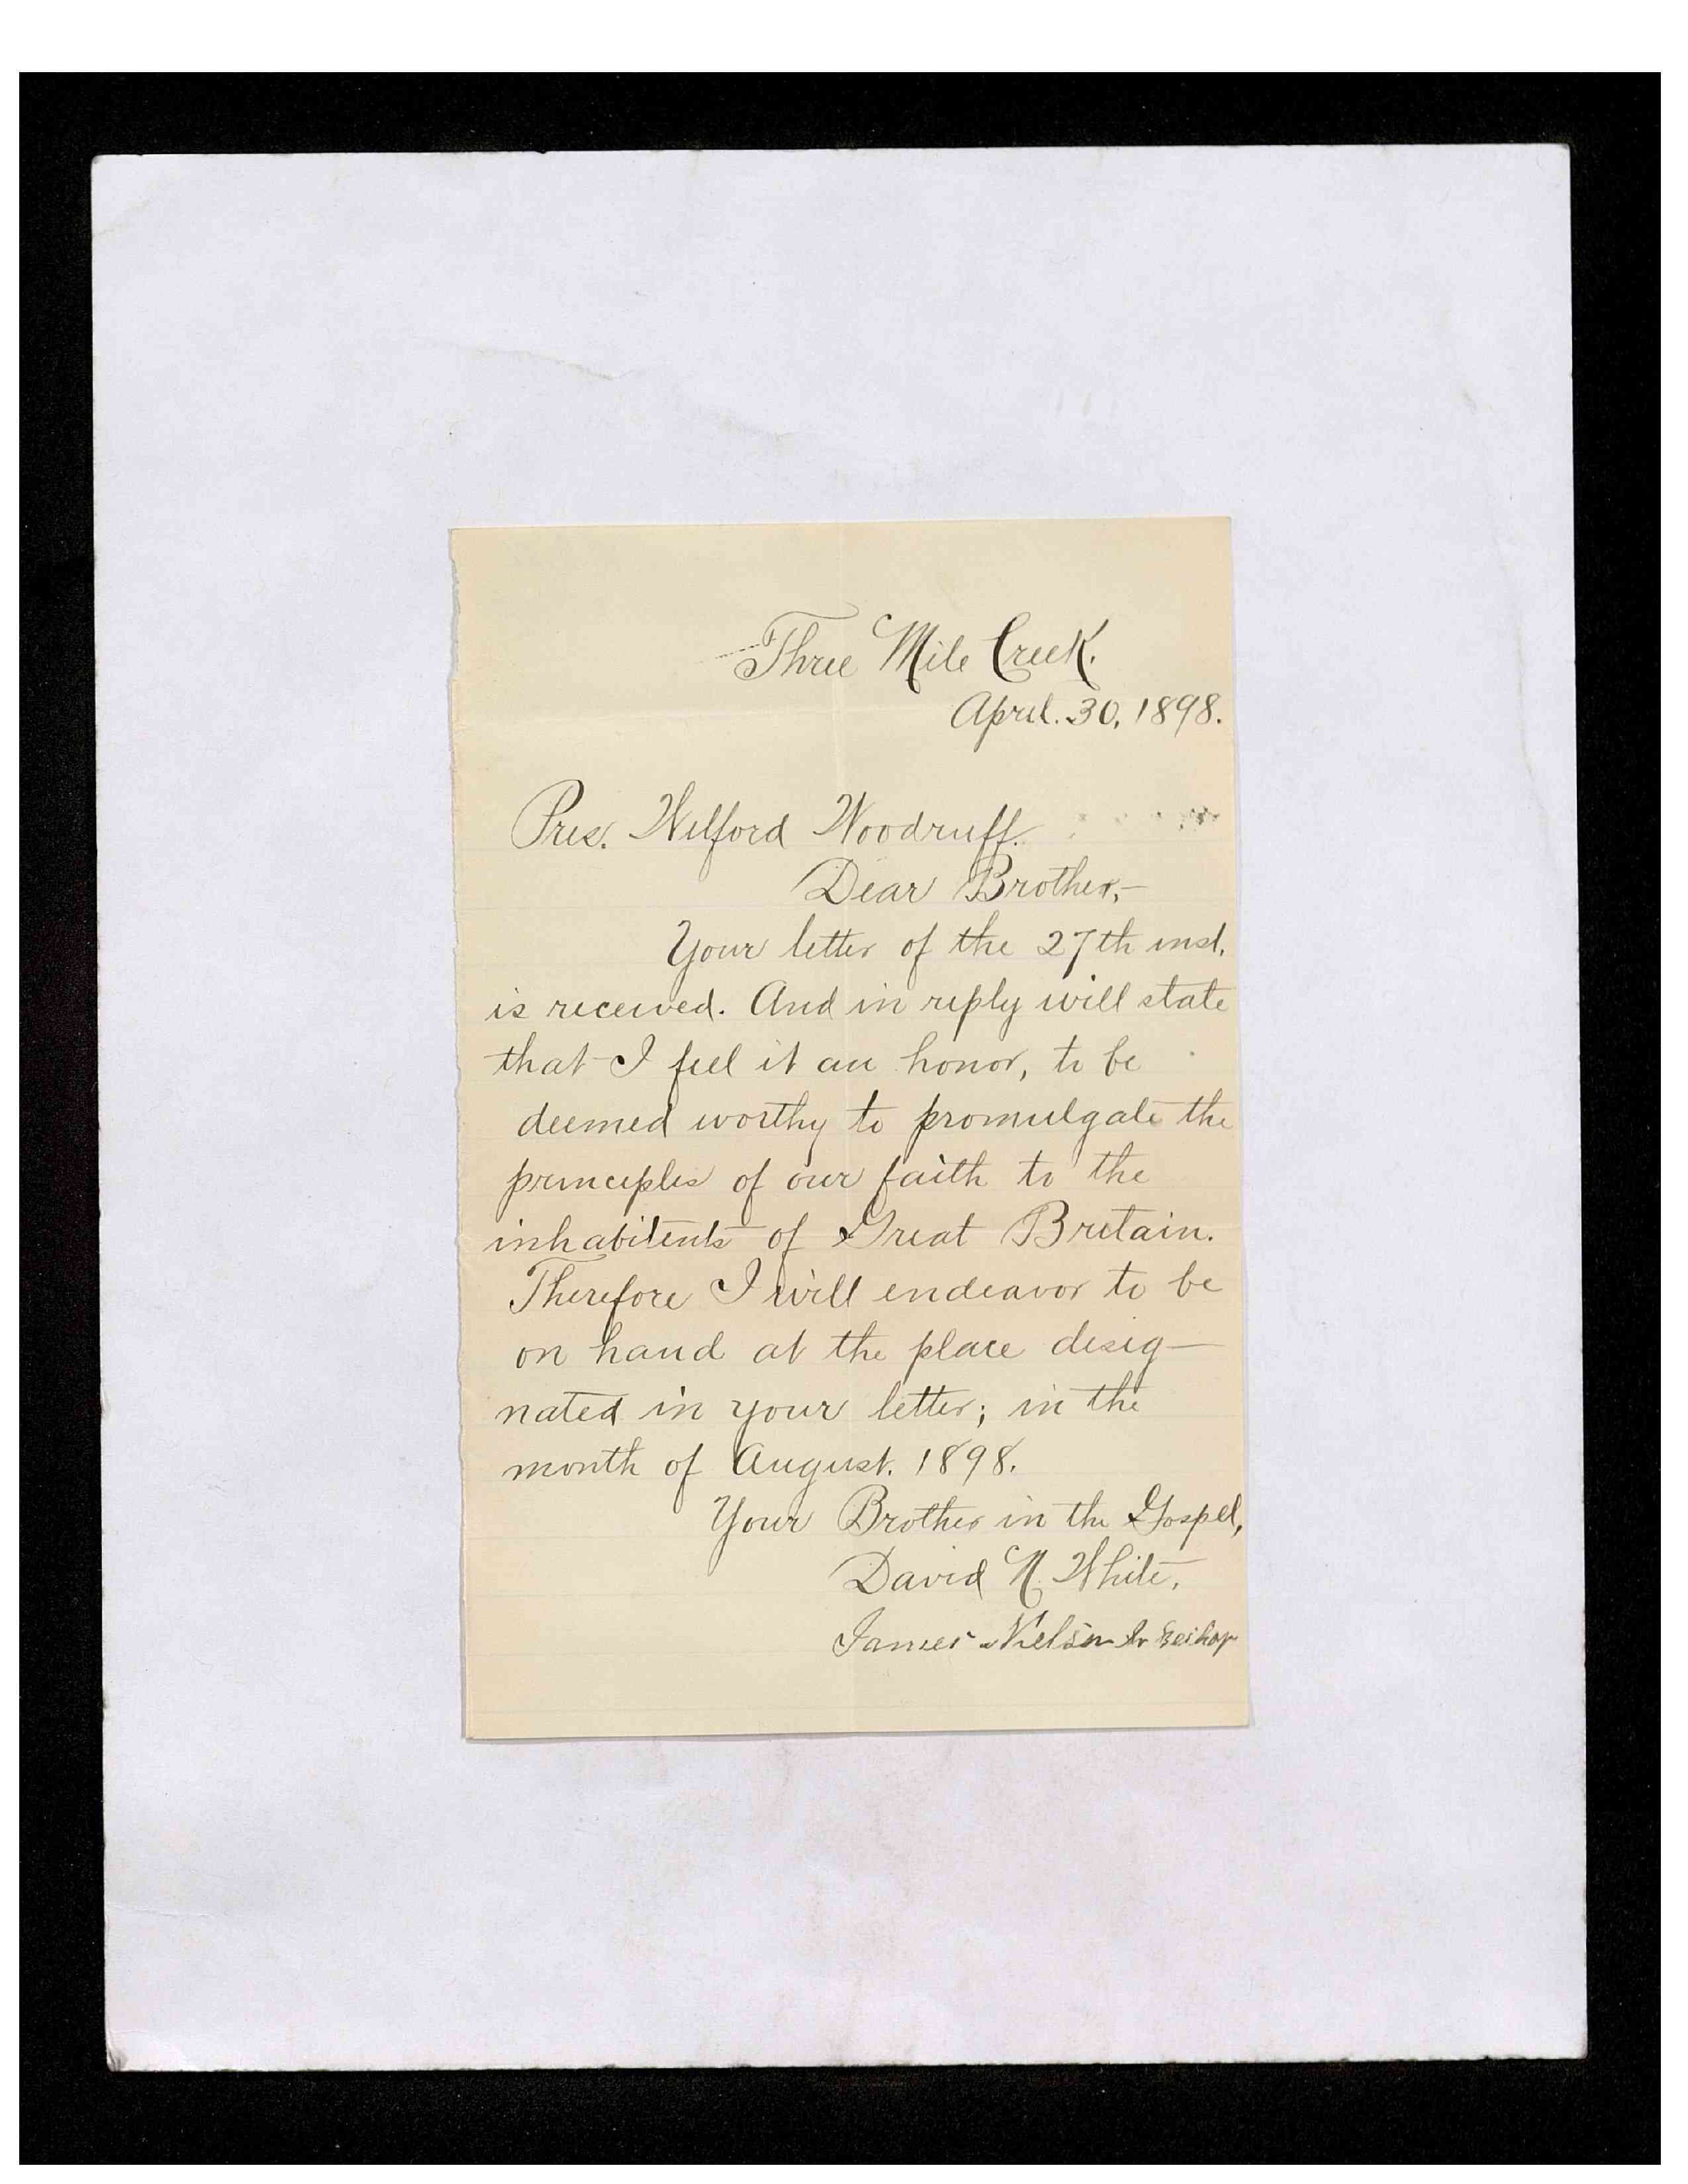 Three Mile Creek.
April. 30, 1898.
Pres. Wilford Woodruff.
Dear Brother,—
Your letter of the 27th inst.
is received. And in reply will state
that I feel it an honor, to be
deemed worthy to promulgate the
principles of our faith to the
inhabitents of Great Britain.
Therefore I will endeavor to be
on hand at the place desig—
nated in your letter; in the
month of August. 1898.
Your Brother in the Gospel,
David N. White.
James Nielsen Bishop